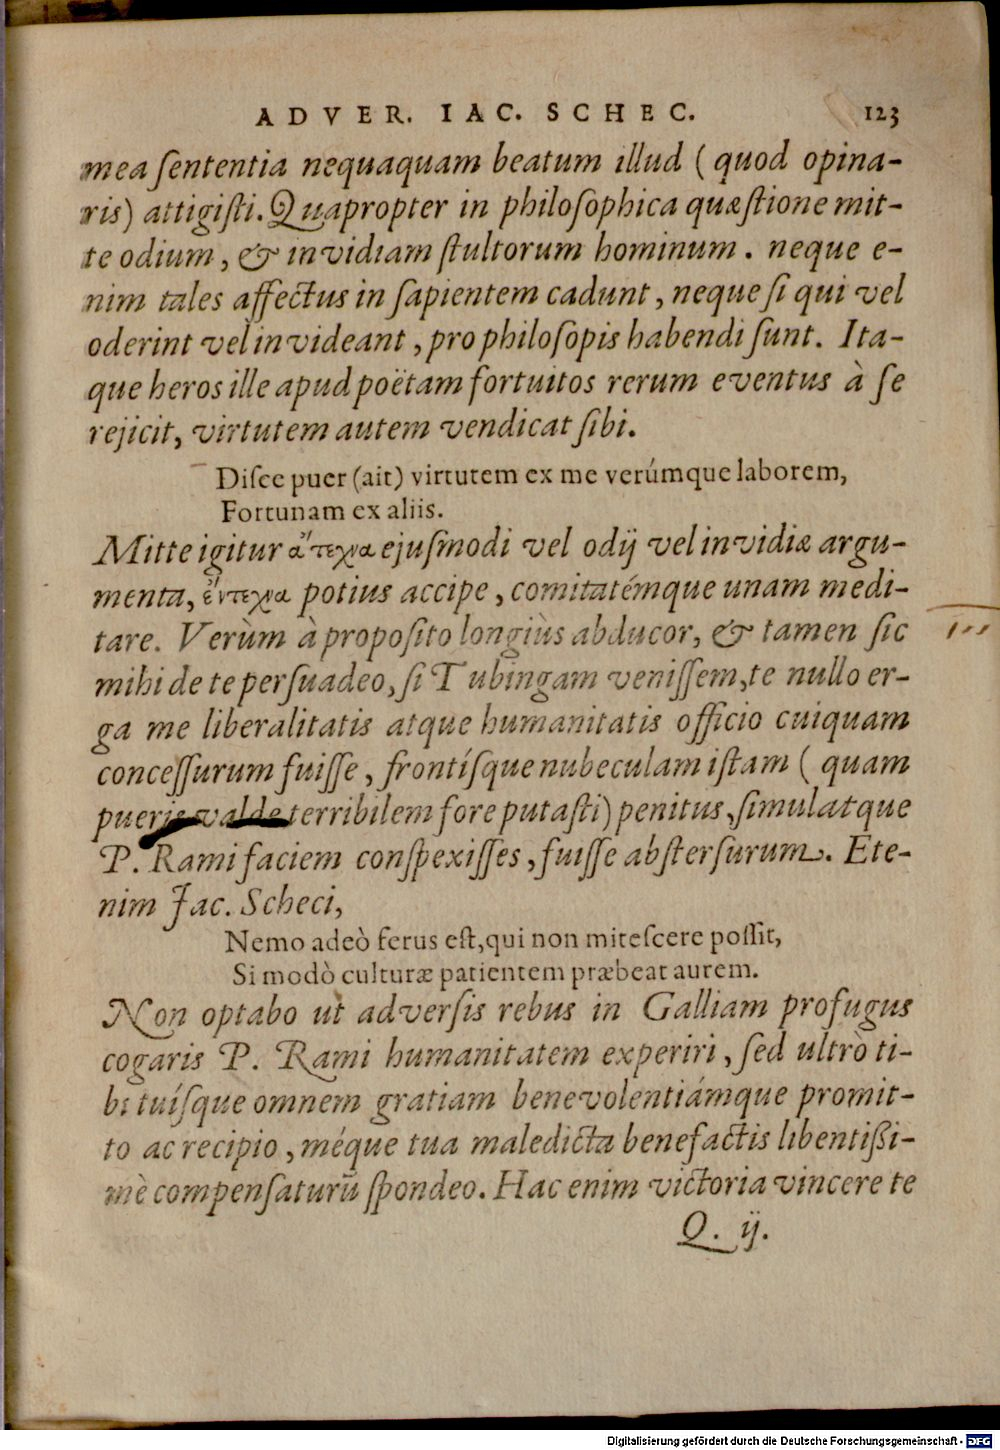 ADVER. IAC. SCHEC. 123
mea ſententia nequaquam beatum illud ( quod opina-
ris) attigiſti. Quapropter in philoſophica quæſtione mit-
te odium, & invidiam ſtultorum hominum. neque e-
nim tales affectus in ſapientem cadunt, neque ſi qui vel
oderint vel invideant, pro philoſopis habendi ſunt. Ita-
que heros ille apud poëtam fortuitos rerum eventus à ſe
rejicit, virtutem autem vendicat ſibi.
Diſce puer (ait) virtutem ex me verúmque laborem,
Fortunam ex aliis.
Mitte igitur ἄτεχνα ejuſmodi vel odij vel invidiæ argu-
menta, ἔντεχνα potius accipe, comitatémque unam medi-
tare. Verùm à propoſito longiùs abducor, & tamen ſic
mihi de te perſuadeo, ſi Tubingam veniſſem, te nullo er-
ga me liberalitatis atque humanitatis officio cuiquam
conceſſurum fuiſſe, frontíſque nubeculam iſtam ( quam
pueris valde terribilem fore putaſti) penitus, ſimulatque
P. Rami faciem conſpexiſſes, fuiſſe abſterſurum. Ete-
nim Jac. Scheci,
Nemo adeò ferus eſt, qui non miteſcere poſſit,
Si modò culturæ patientem præbeat aurem.
Non optabo ut adverſis rebus in Galliam profugus
cogaris P. Rami humanitatem experiri, ſed ultrò ti-
bi tuíſque omnem gratiam benevolentiámque promit-
to ac recipio, méque tua maledicta benefactis libentißi-
mè compenſaturū ſpondeo. Hac enim victoria vincere te
Q. ij.
Digitalisierung gefördert durch die Deutsche Forschungsgemeinschaft - DFG